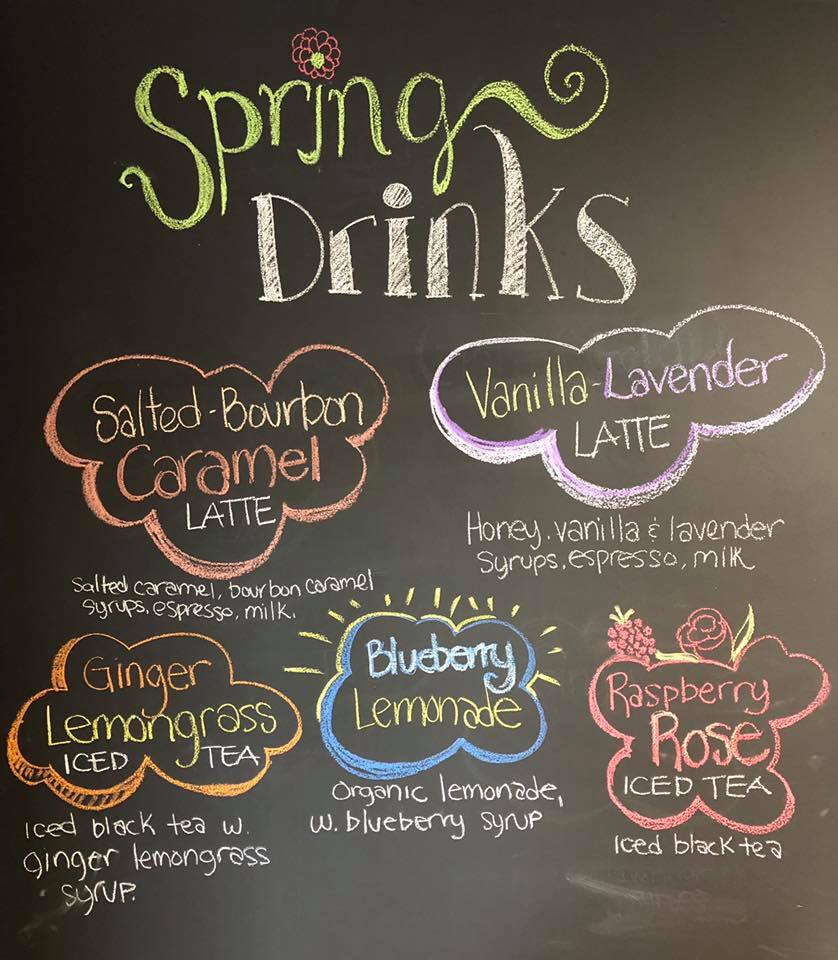 Spring
Drinks
Salted-Bourbon
Caramel
LATTE
Salted caramel, bourbon caramel
syrups, espresso, milk.
Vanilla-Lavender
LATTE
Honey, vanilla & lavender
syrups, espresso, milk
Ginger
Lemongrass
ICED TEA
Iced black tea w.
ginger lemongrass
syrup.
Blueberry
Lemonade
Organic lemonade,
w. blueberry syrup
Raspberry
Rose
ICED TEA
Iced black tea